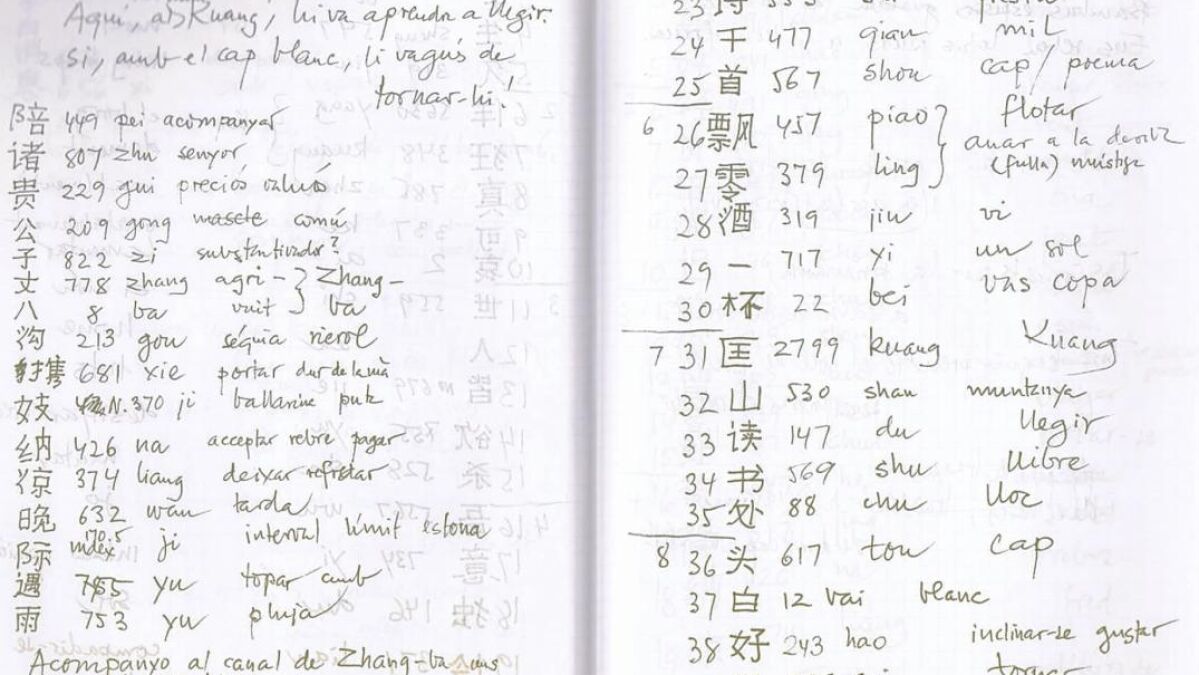 Aquí, al Kuang, hi va aprendre a llegir.
Si, amb el cap blanc, li vagués de
tornar-hi!
陪 449 pei acompanyar
诸 807 zhu senyor
贵 229 gui preciós valuós
公 209 gong mascle comú
子 822 zi substantivador?
丈 778 zhang agri- } Zhang-
八 8 ba vuit } ba
沟 213 gou séquia rierol
携 681 xie portar dur de la mà
妓 N. 370 ji ballarina puta
纳 426 na acceptar rebre pagar
凉 374 liang deixar refredar
晚 632 wan tarda
际 index 170.5 ji interval límit estona
遇 755 yu topar amb
雨 753 yu pluja
Acompanyo al canal de Zhang-ba uns
23
24 千 477 qian mil
25 首 567 shou cap/poema
6 26 飘 457 piao } flotar
anar a la deriva
27 零 379 ling } (fulla) mústiga
28 酒 319 jiu vi
29 一 717 yi un sol
30 杯 22 bei vas copa
7 31 匡 2799 kuang Kuang
32 山 530 shan muntanya
33 读 147 du llegir
34 书 569 shu llibre
35 处 88 chu lloc
8 36 头 617 tou cap
37 白 12 bai blanc
38 好 243 hao inclinar-se gustar
tornar